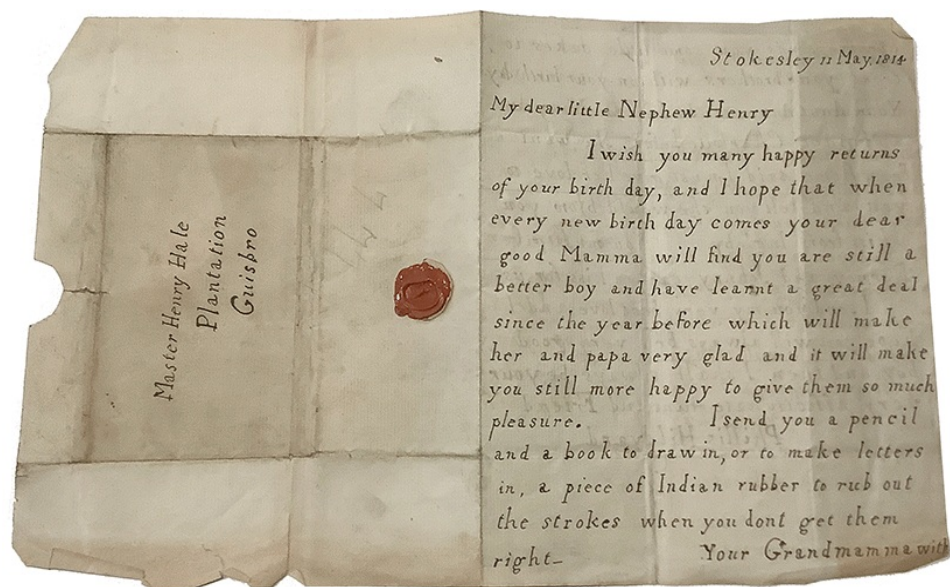 Master Henry Hale
Plantation
Guisbro
Stokesley 11 May, 1814
My dear little Nephew Henry
I wish you many happy returns
of your birth day, and I hope that when
every new birth day comes your dear
good Mamma will find you are still a
better boy and have learnt a great deal
since the year before which will make
her and papa very glad and it will make
you still more happy to give them so much
pleasure. I send you a pencil
and a book to draw in, or to make letters
in, a piece of Indian rubber to rub out
the strokes when you dont get them
right_ Your Grandmamma with